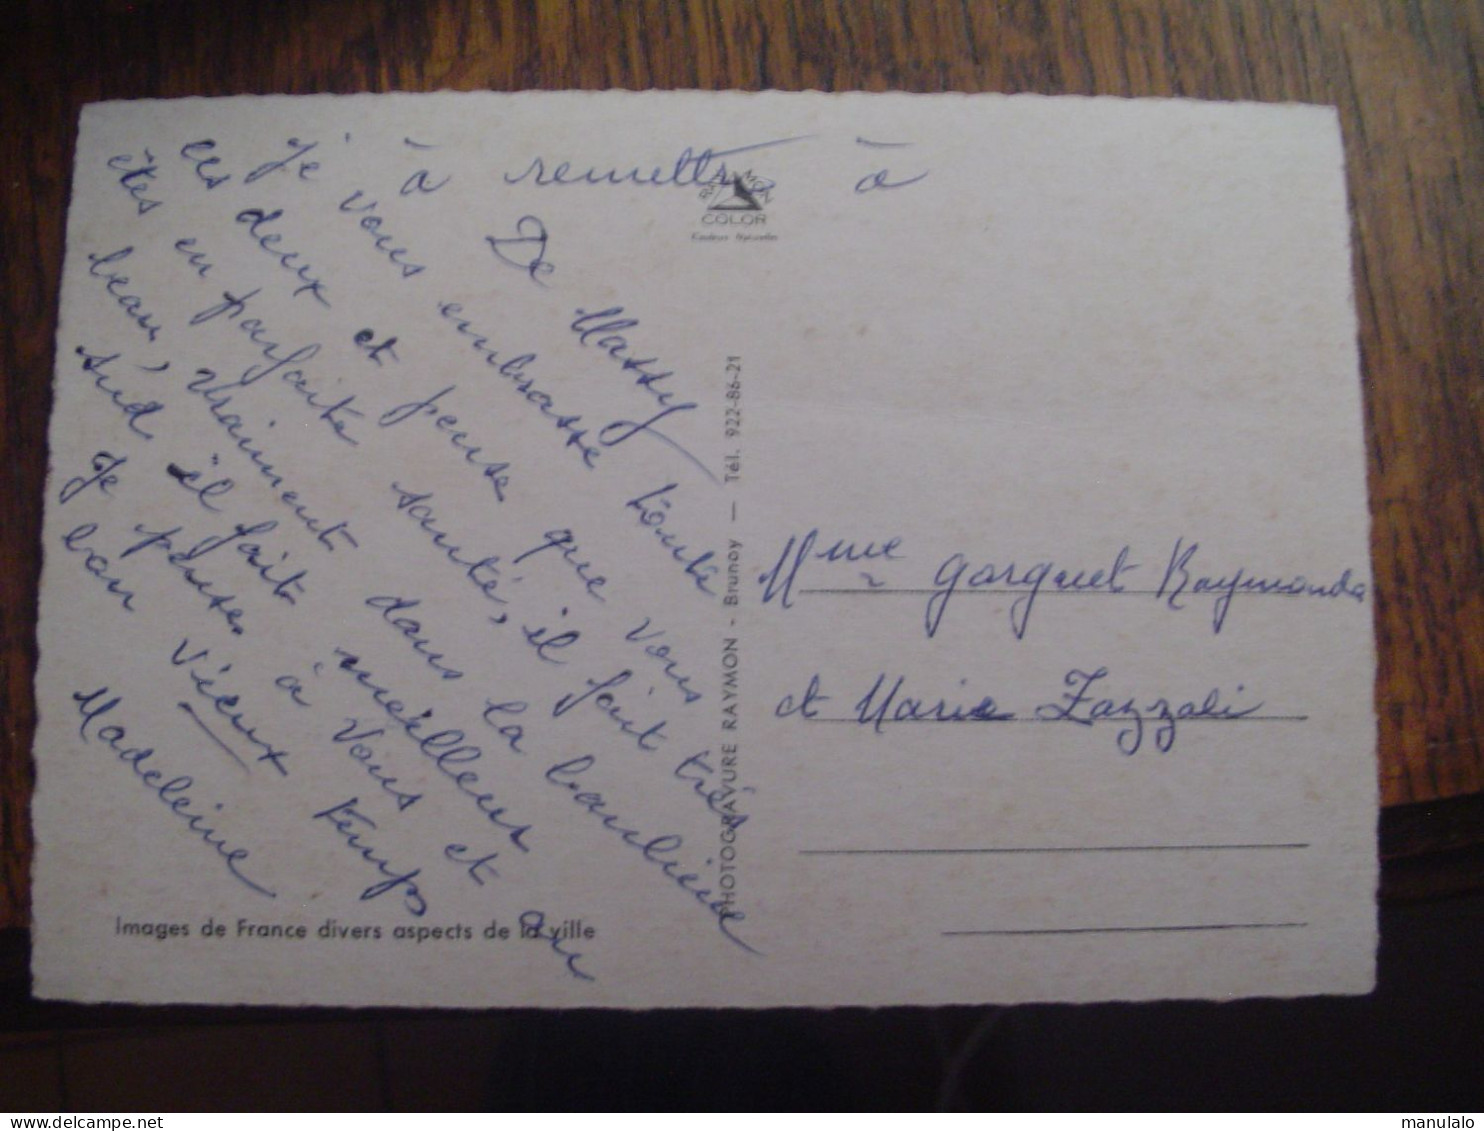 à remettre à
De Massy
Je vous embrasse toute
les deux et pense que vous
êtes en parfaite santé, il fait très
beau, vraiment dans la banlieue
sud il fait meilleur
Je pense à vous et au
bon vieux temps
Madeleine
RAYMON
COLOR
Couleurs Naturelles
PHOTOGRAVURE RAYMON - Brunoy — Tél. 922-86-21
Mme Garguet Raymonda
et Marie Zazzali
Images de France divers aspects de la ville
manulalo